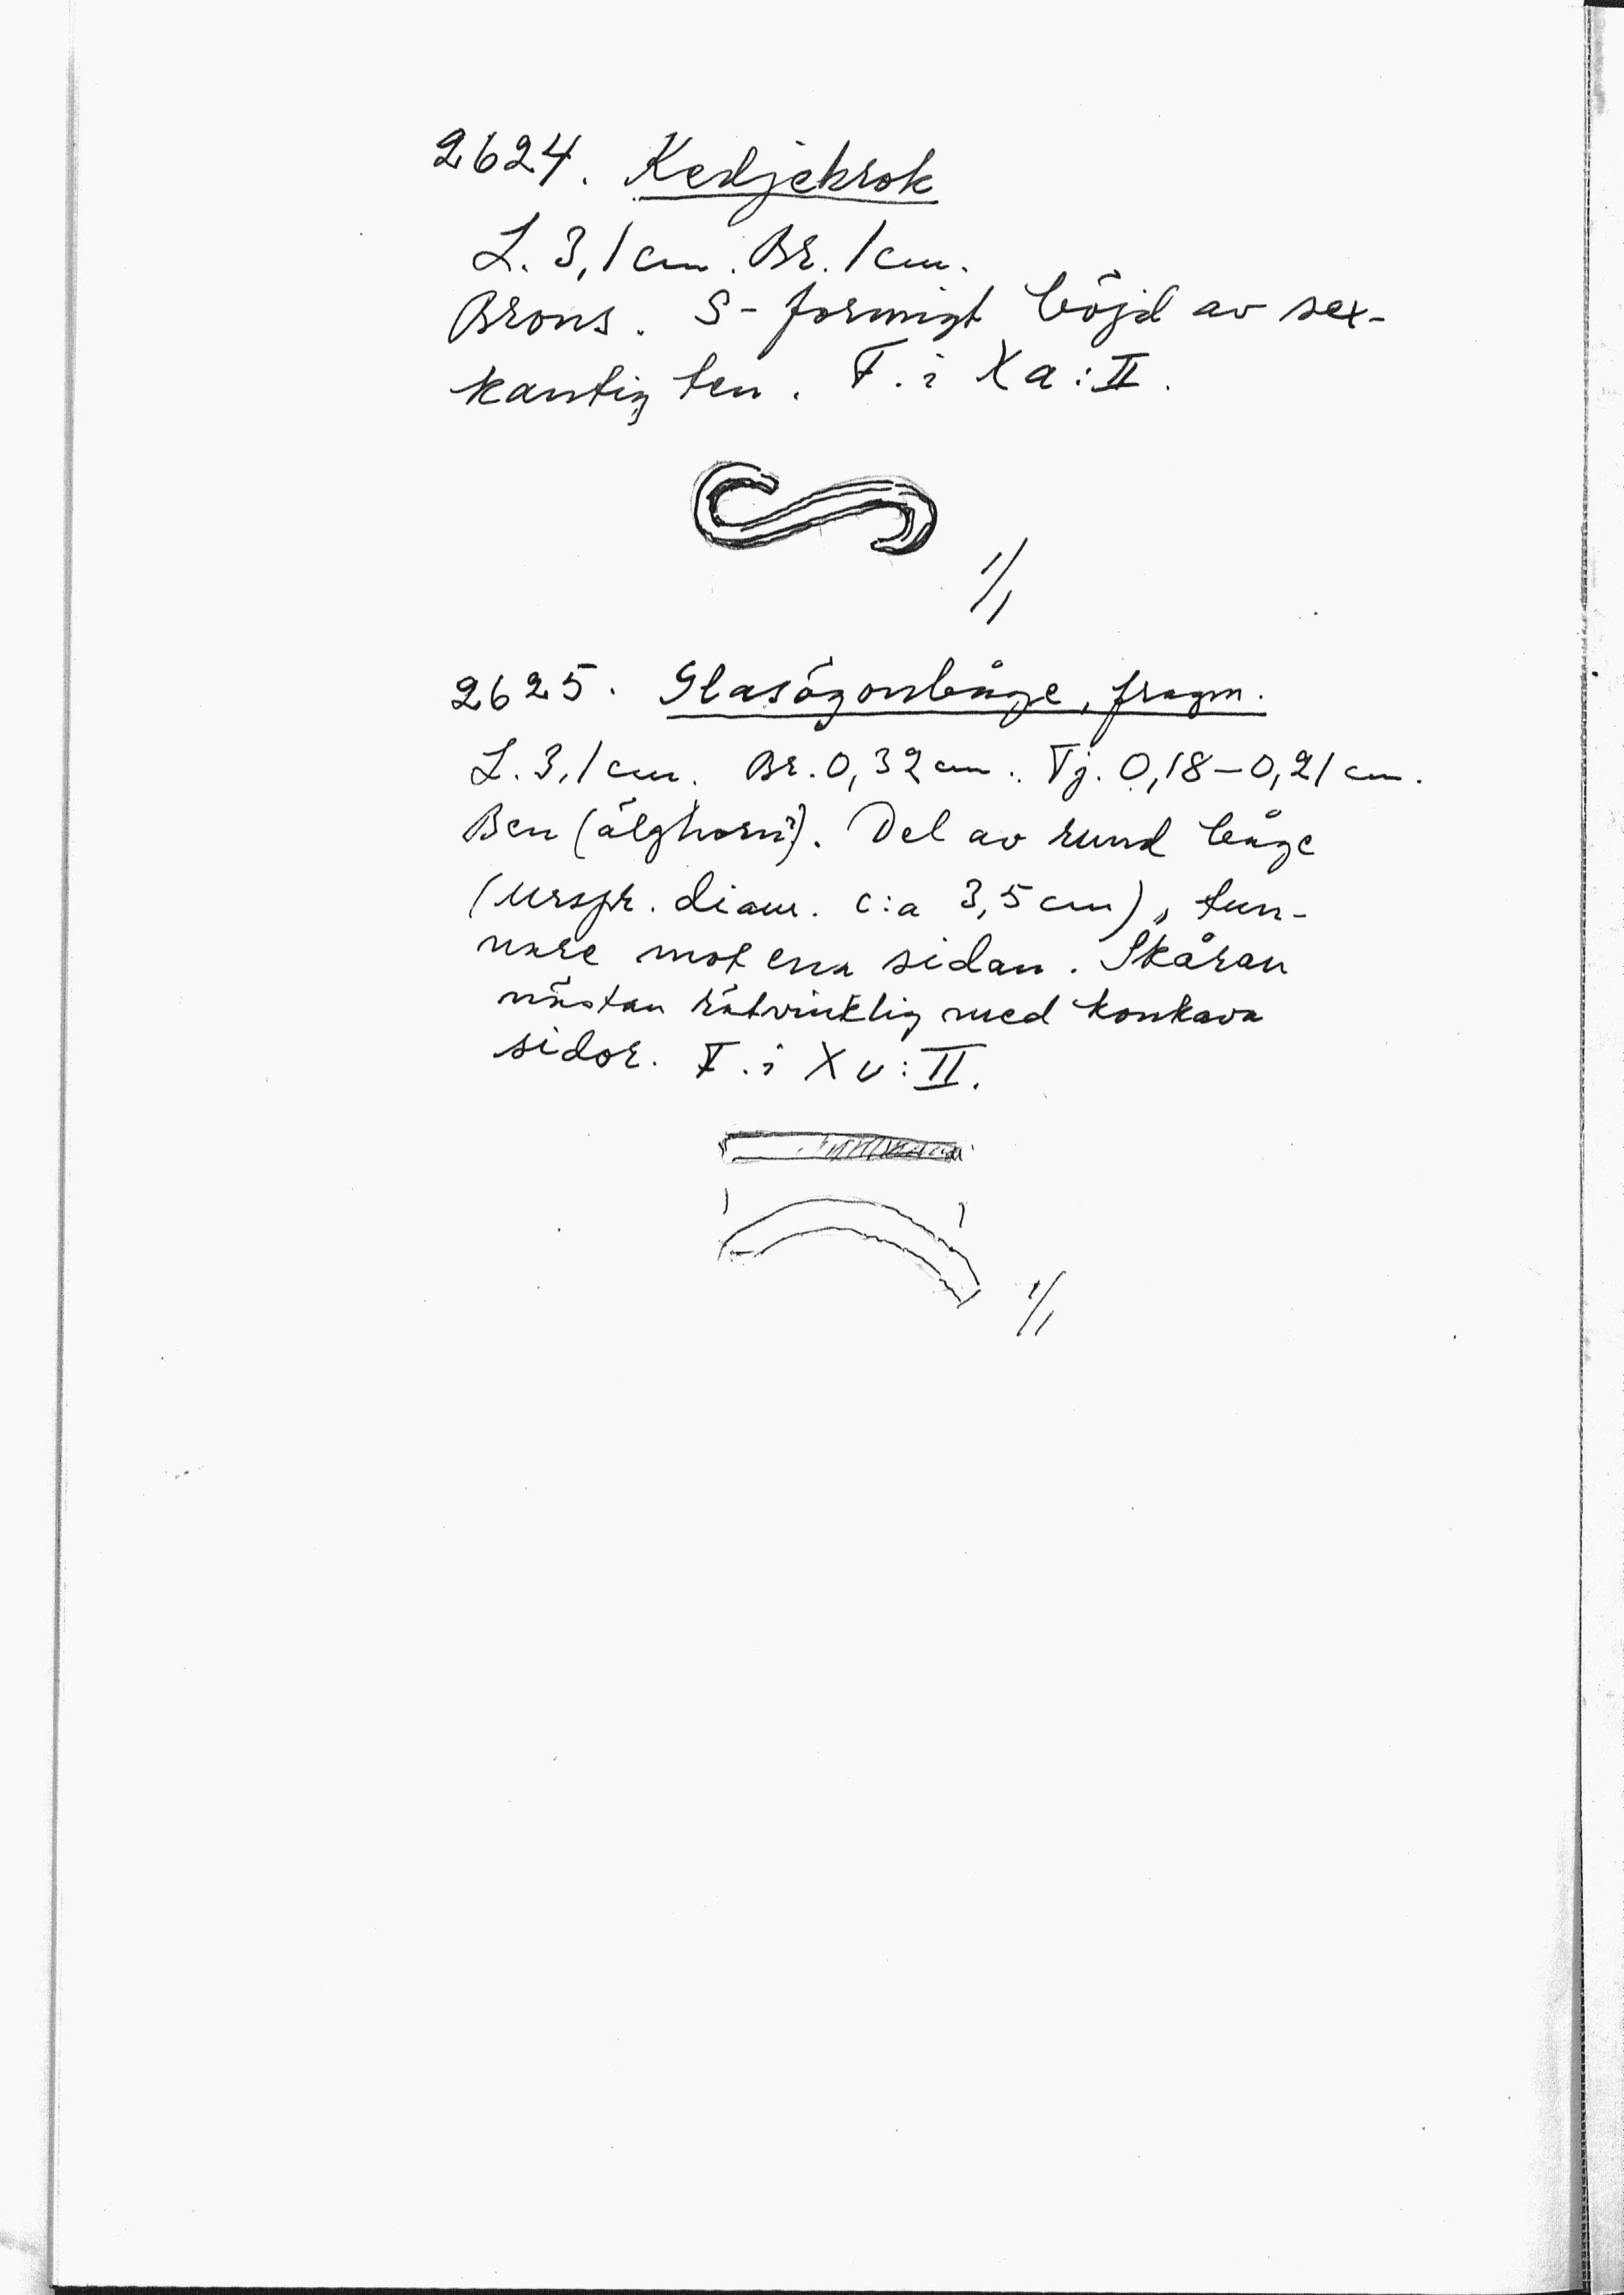 2624. Kedjekrok
L. 3,1 cm. Br. 1 cm.
Brons. S-formigt böjd av sex-
kantig ten. F. i Xa:II.
1/1
2625. Glasögonbåge, fragm.
L. 3,1 cm. Br. 0,32 cm. Tj. 0,18–0,21 cm.
Ben (älghorn?). Del av rund båge
(urspr. diam. c:a 3,5 cm), tun-
nare mot ena sidan. Skåran
nästan rätvinklig med konkava
sidor. F. i Xv:II.
1/1